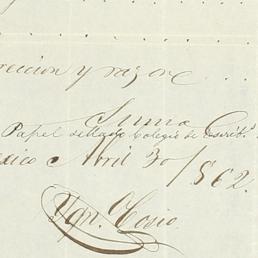 reccion y razone . . .
Suma
Papel sellado Colegio de escrib.s
exico Abril 30/862.
Ygn. Cosio